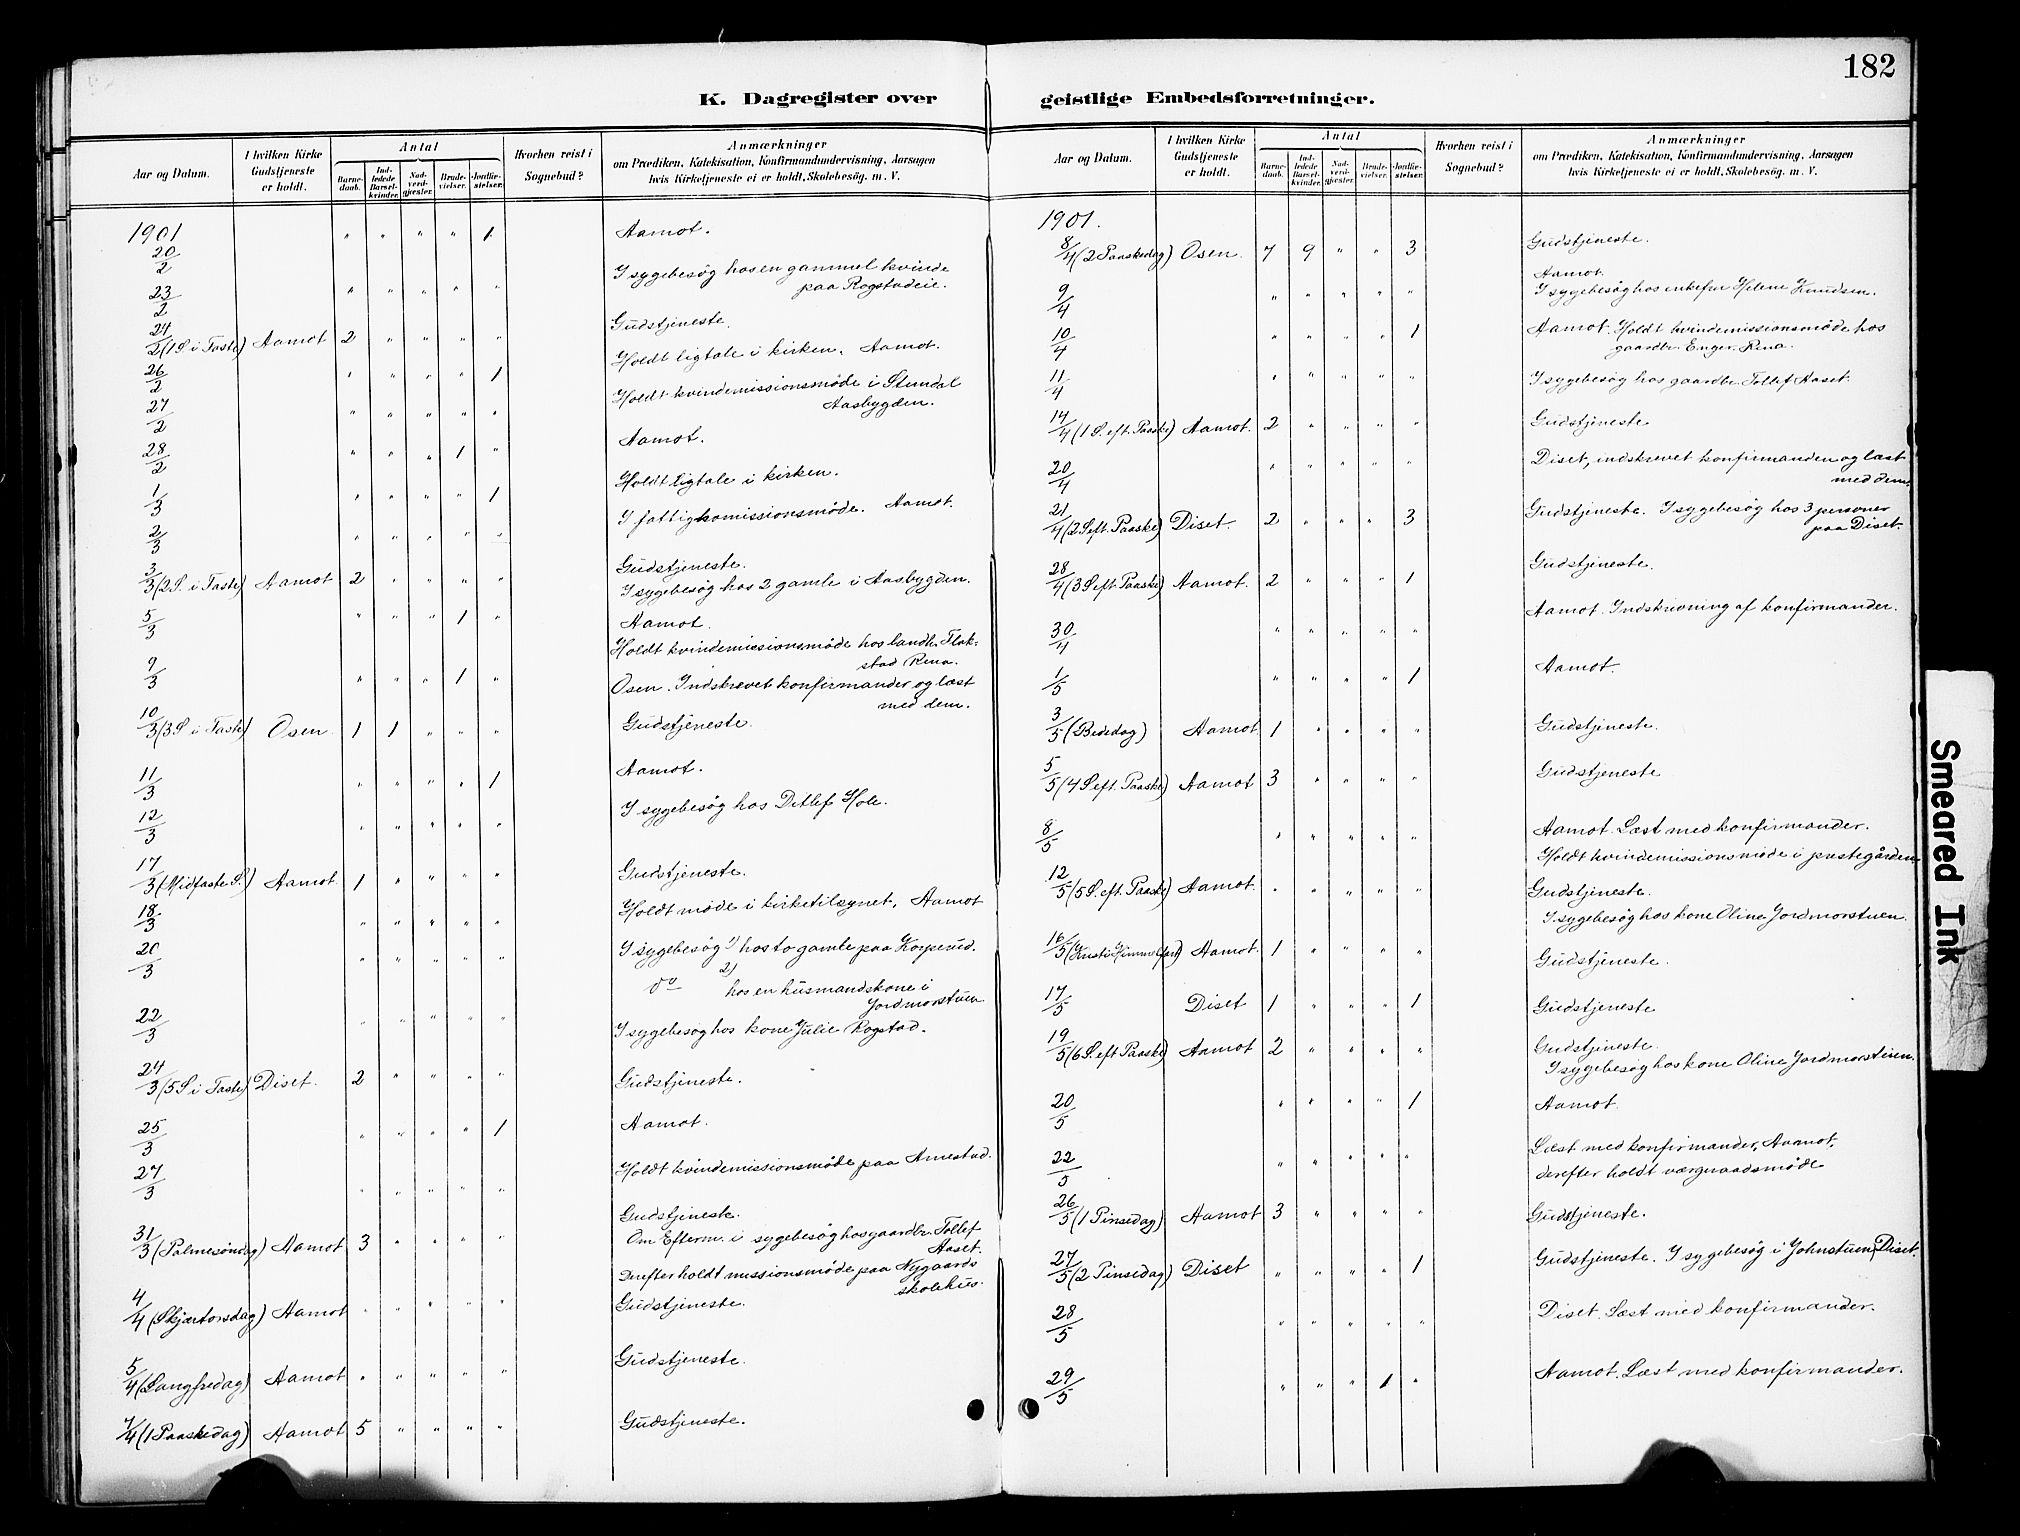 182
K. Dagregister over
geistlige Embedsforretninger.
Aar og Datum.
I hvilken Kirke Gudstjeneste er holdt.
Antal
Barne-daab.
Ind-ledede Barsel-kvinder.
Nad-verd-gjester.
Brude-vielser.
Jordfæ-stelser.
Hvorhen reist i Sognebud?
Anmærkninger
om Prædiken, Katekisation, Konfirmandundervisning, Aarsagen
hvis Kirketjeneste ei er holdt, Skolebesøg. m. V.
1901
20/2 " " " " 1 Aamot.
23/2 " " " " " I sygebesøg hos en gammel kvinde
paa Rogstadeie.
24/2 (1 S. i Faste) Aamot 2 " " " " Gudstjeneste.
26/2 " " " " 1 Holdt ligtale i kirken. Aamot.
27/2 " " " " " Holdt kvindemissionsmøde i Stendal
Aasbygden.
28/2 " " " 1 " Aamot.
1/3 " " " " 1 Holdt ligtale i kirken.
2/3 " " " " " I fattigkomissionsmøde. Aamot.
3/3 (2 S. i Faste) Aamot 2 " " " " Gudstjeneste.
I sygebesøg hos 2 gamle i Aasbygden.
5/3 " " " 1 " Aamot.
Holdt kvindemissionsmøde hos landh. Flak-
stad Rena.
9/3 " " " 1 " Osen. Indskrevet konfirmander og læst
med dem.
10/3 (3 S. i Faste) Osen 1 1 " " " Gudstjeneste.
11/3 " " " " 1 Aamot.
12/3 " " " " " I sygebesøg hos Ditlef Hole.
17/3 (Midfaste S.) Aamot. 1 " " " " Gudstjeneste.
18/3 " " " " " Holdt møde i kirketilsynet, Aamot
20/3 " " " " " I sygebesøg 1) hos to gamle paa Korperud.
do 2) hos en husmandskone i
Jordmorstuen
22/3 " " " " " I sygebesøg hos kone Julie Rogstad.
24/3 (5 S. i Faste) Diset. 2 " " " " Gudstjeneste.
25/3 " " " " 1 Aamot.
27/3 " " " " " Holdt kvindemissionsmøde paa Arnestad.
31/3 (Palmesøndag) Aamot 3 " " " " Gudstjeneste.
Om Efterm. i sygebesøg hos gaardbr. Tollef
Aaset.
Derefter holdt missionsmøde paa Nygaards
skolehus.
4/4 (Skjærtorsdag) Aamot " " " " " Gudstjeneste.
5/4 (Langfredag) Aamot " " " " " Gudstjeneste.
7/4 (1 Paaskedag) Aamot 5 " " " " Gudstjeneste.
Aar og Datum.
I hvilken Kirke Gudstjeneste er holdt.
Antal
Barne-daab.
Ind-ledede Barsel-kvinder.
Nad-verd-gjester.
Brude-vielser.
Jordfæ-stelser.
Hvorhen reist i Sognebud?
Anmærkninger
om Prædiken, Katekisation, Konfirmandundervisning, Aarsagen
hvis Kirketjeneste ei er holdt, Skolebesøg. m. V.
1901.
8/4 (2 Paaskedag) Osen. 7 9 " " 3 Gudstjeneste.
Aamot.
9/4 " " " " " I sygebesøg hos enkefru Helene Knudsen.
10/4 " " " " 1 Aamot. Holdt kvindemissionsmøde hos
gaardbr. Enger. Rena.
11/4 " " " " " I sygebesøg hos gaardbr. Tollef Aaset.
14/4 (1 S. eft. Paaske) Aamot. 2 " " " " Gudstjeneste
20/4 " " " " " Diset, indskrevet konfirmanden og læst
med dem.
21/4 (2 S. eft. Paaske) Diset. 2 " " " 3 Gudstjeneste. I sygebesøg hos 3 personer
paa Diset.
28/4 (3 S. eft. Paaske) Aamot. 2 " " " 1 Gudstjeneste.
30/4 " " " " " Aamot. Indskrivning af konfirmander.
1/5 " " " " 1 Aamot.
3/5 (Bededag) Aamot 1 " " " " Gudstjeneste.
5/5 (4 S. eft. Paaske) Aamot 3 " " " " Gudstjeneste
8/5 " " " " " Aamot. Læst med konfirmander.
Holdt kvindemissionsmøde i prestegården
12/5 (5 S. eft. Paaske) Aamot. " " " " " Gudstjeneste.
I sygebesøg hos kone Oline Jordmorstuen.
16/5 (Kristi Himmelfart) Aamot. 1 " " " " Gudstjeneste.
17/5 Diset 1 " " " 1 Gudstjeneste
19/5 (6 S. eft Paaske) Aamot 2 " " " " Gudstjeneste.
I sygebesøg hos kone Oline Jordmorstuen.
20/5 " " " " 1 Aamot.
22/5 " " " " " Læst med konfirmander, Aamot,
derefter holdt værgeraadsmøde
26/5 (1 Pinsedag) Aamot 3 " " " " Gudstjeneste.
27/5 (2 Pinsedag) Diset " " " " 1 Gudstjeneste. I sygebesøg i Johnstuen, Diset.
28/5 " " " " " Diset. Læst med konfirmander.
29/5 " " " 1 " Aamot. Læst med konfirmander.
Smeared Ink